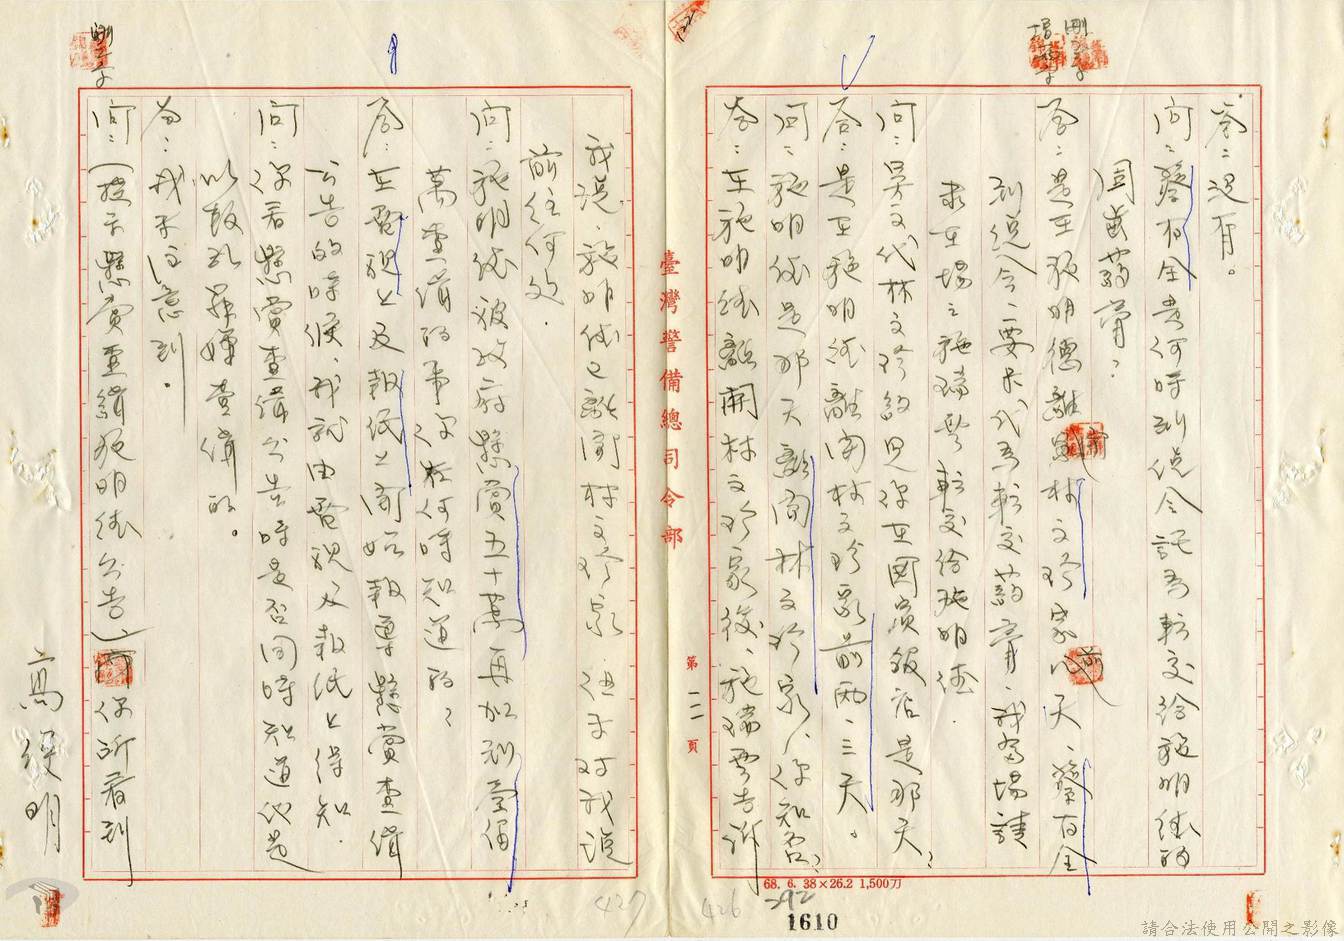 答：沒有。
問：蔡有全是何時到從令託為轉交給施明德的
假齒藥膏？
答：是在施明德離開林文珍家前天，蔡有全
到從令二要求代為轉交藥膏，我當場請
求在場之施瑞雲轉交給施明德．
問：吳文代林文珍約見你在國賓飯店是那天？
答：是在施明德離開林文珍家前兩、三天。
問：施明德是那天離開林文珍家，你知否？
答：在施明德離開林文珍家後，施瑞雲告訴
我說，施明德已離開林文珍家，但未對我說
前往何處．
問：施明德被政府懸賞五十萬再加到壹佰
萬查緝的事你在何時知道的？
答：在電視上及報紙上開始報導懸賞查緝
公告的時候，我就由電視及報紙上得知．
問：你看懸賞查緝公告時是否同時知道他是
以叛亂罪嫌查緝的。
答：我未注意到．
問：（提示懸賞查緝施明德公告）你所看到
高俊明
臺灣警備總司令部
第 二二 頁
68. 6. 38×26.2 1,500刀
427
426
292
1610
請合法使用公開之影像